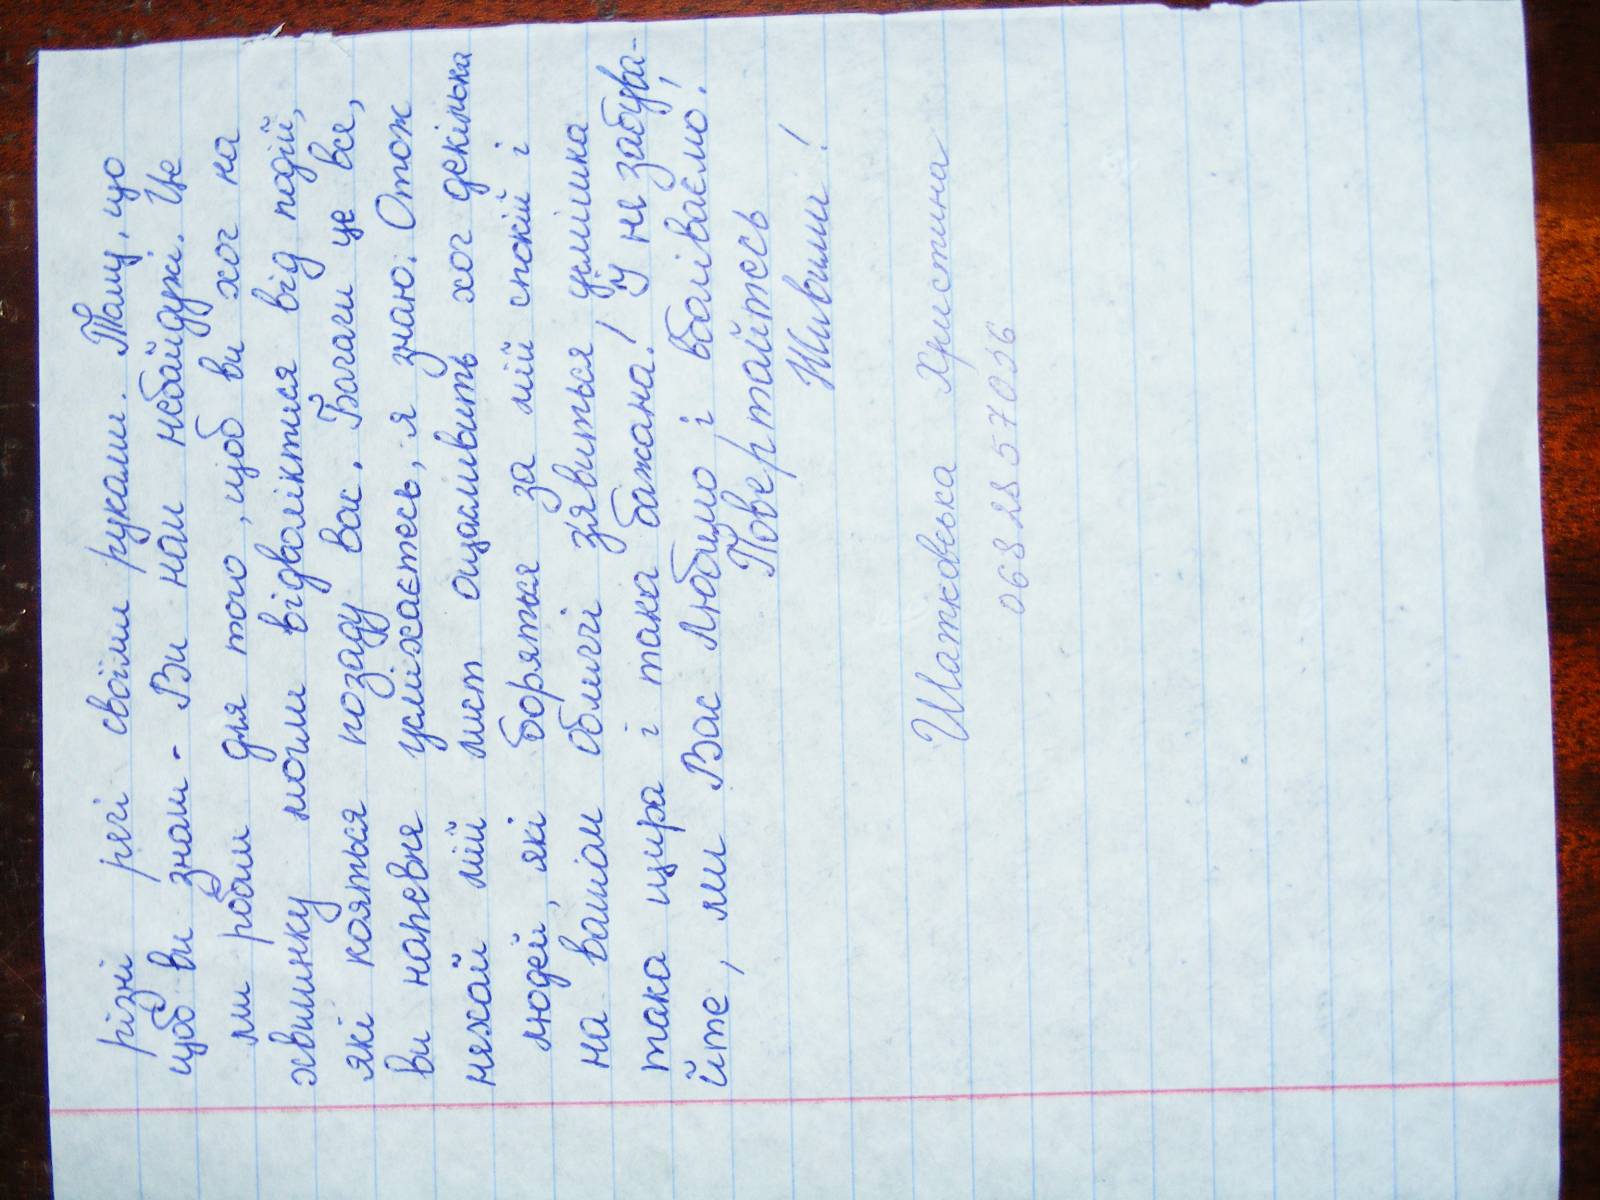 різні речі своїми руками. Тому, що
щоб ви знали - Ви нам небайдужі. Це
ми робим для того, щоб ви хоч на
хвилинку могли відволіктися від подій,
які кояться позаду вас. Бачачи це все,
ви напевне усміхаєтесь, я знаю. Отож
нехай мій лист ощасливить хоч декілька
людей, які борятья за мій спокій і
на вашім обличчі зявиться усмішка
така щира і така бажана! Й не забува-
йте, ми Вас любимо і вболіваємо!
Повертайтесь
Живими!
Шатковська Христина
0682857036